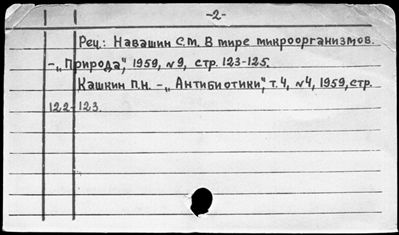 -2-
Рец.: Навашин С.М. В мире микроорганизмов.
-„Природа", 1959, №9, стр. 123-125.
Кашкин П.Н. -„Антибиотики", т. 4, №4, 1959, стр.
122-123.